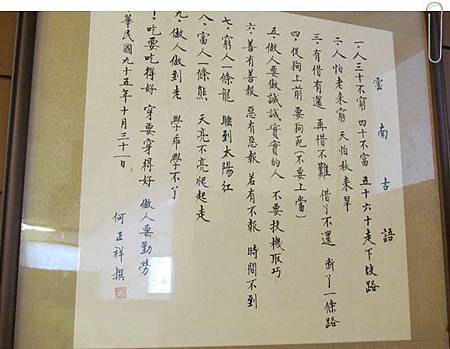 雲南古語
一.人三十不窮 四十不富 五十六十走下坡路
二.人怕老来窮 天怕秋来旱
三.有借有還 再借不難 借丫不還 断丫一條路
四.從狗上前 要狗死(不要上當)
五.做人要做誠誠實實的人 不要投機取巧
六.善有善報 惡有惡報 若有不報 時間不到
七.窮人一條龍 睡到太陽红
八.富人一條熊 天亮不亮爬起走
九.做人做到老 學乖學不丫
!吃要吃得好 穿要穿得好 做人要勤勞
華民國九十五年十月三十一日
何正祥撰